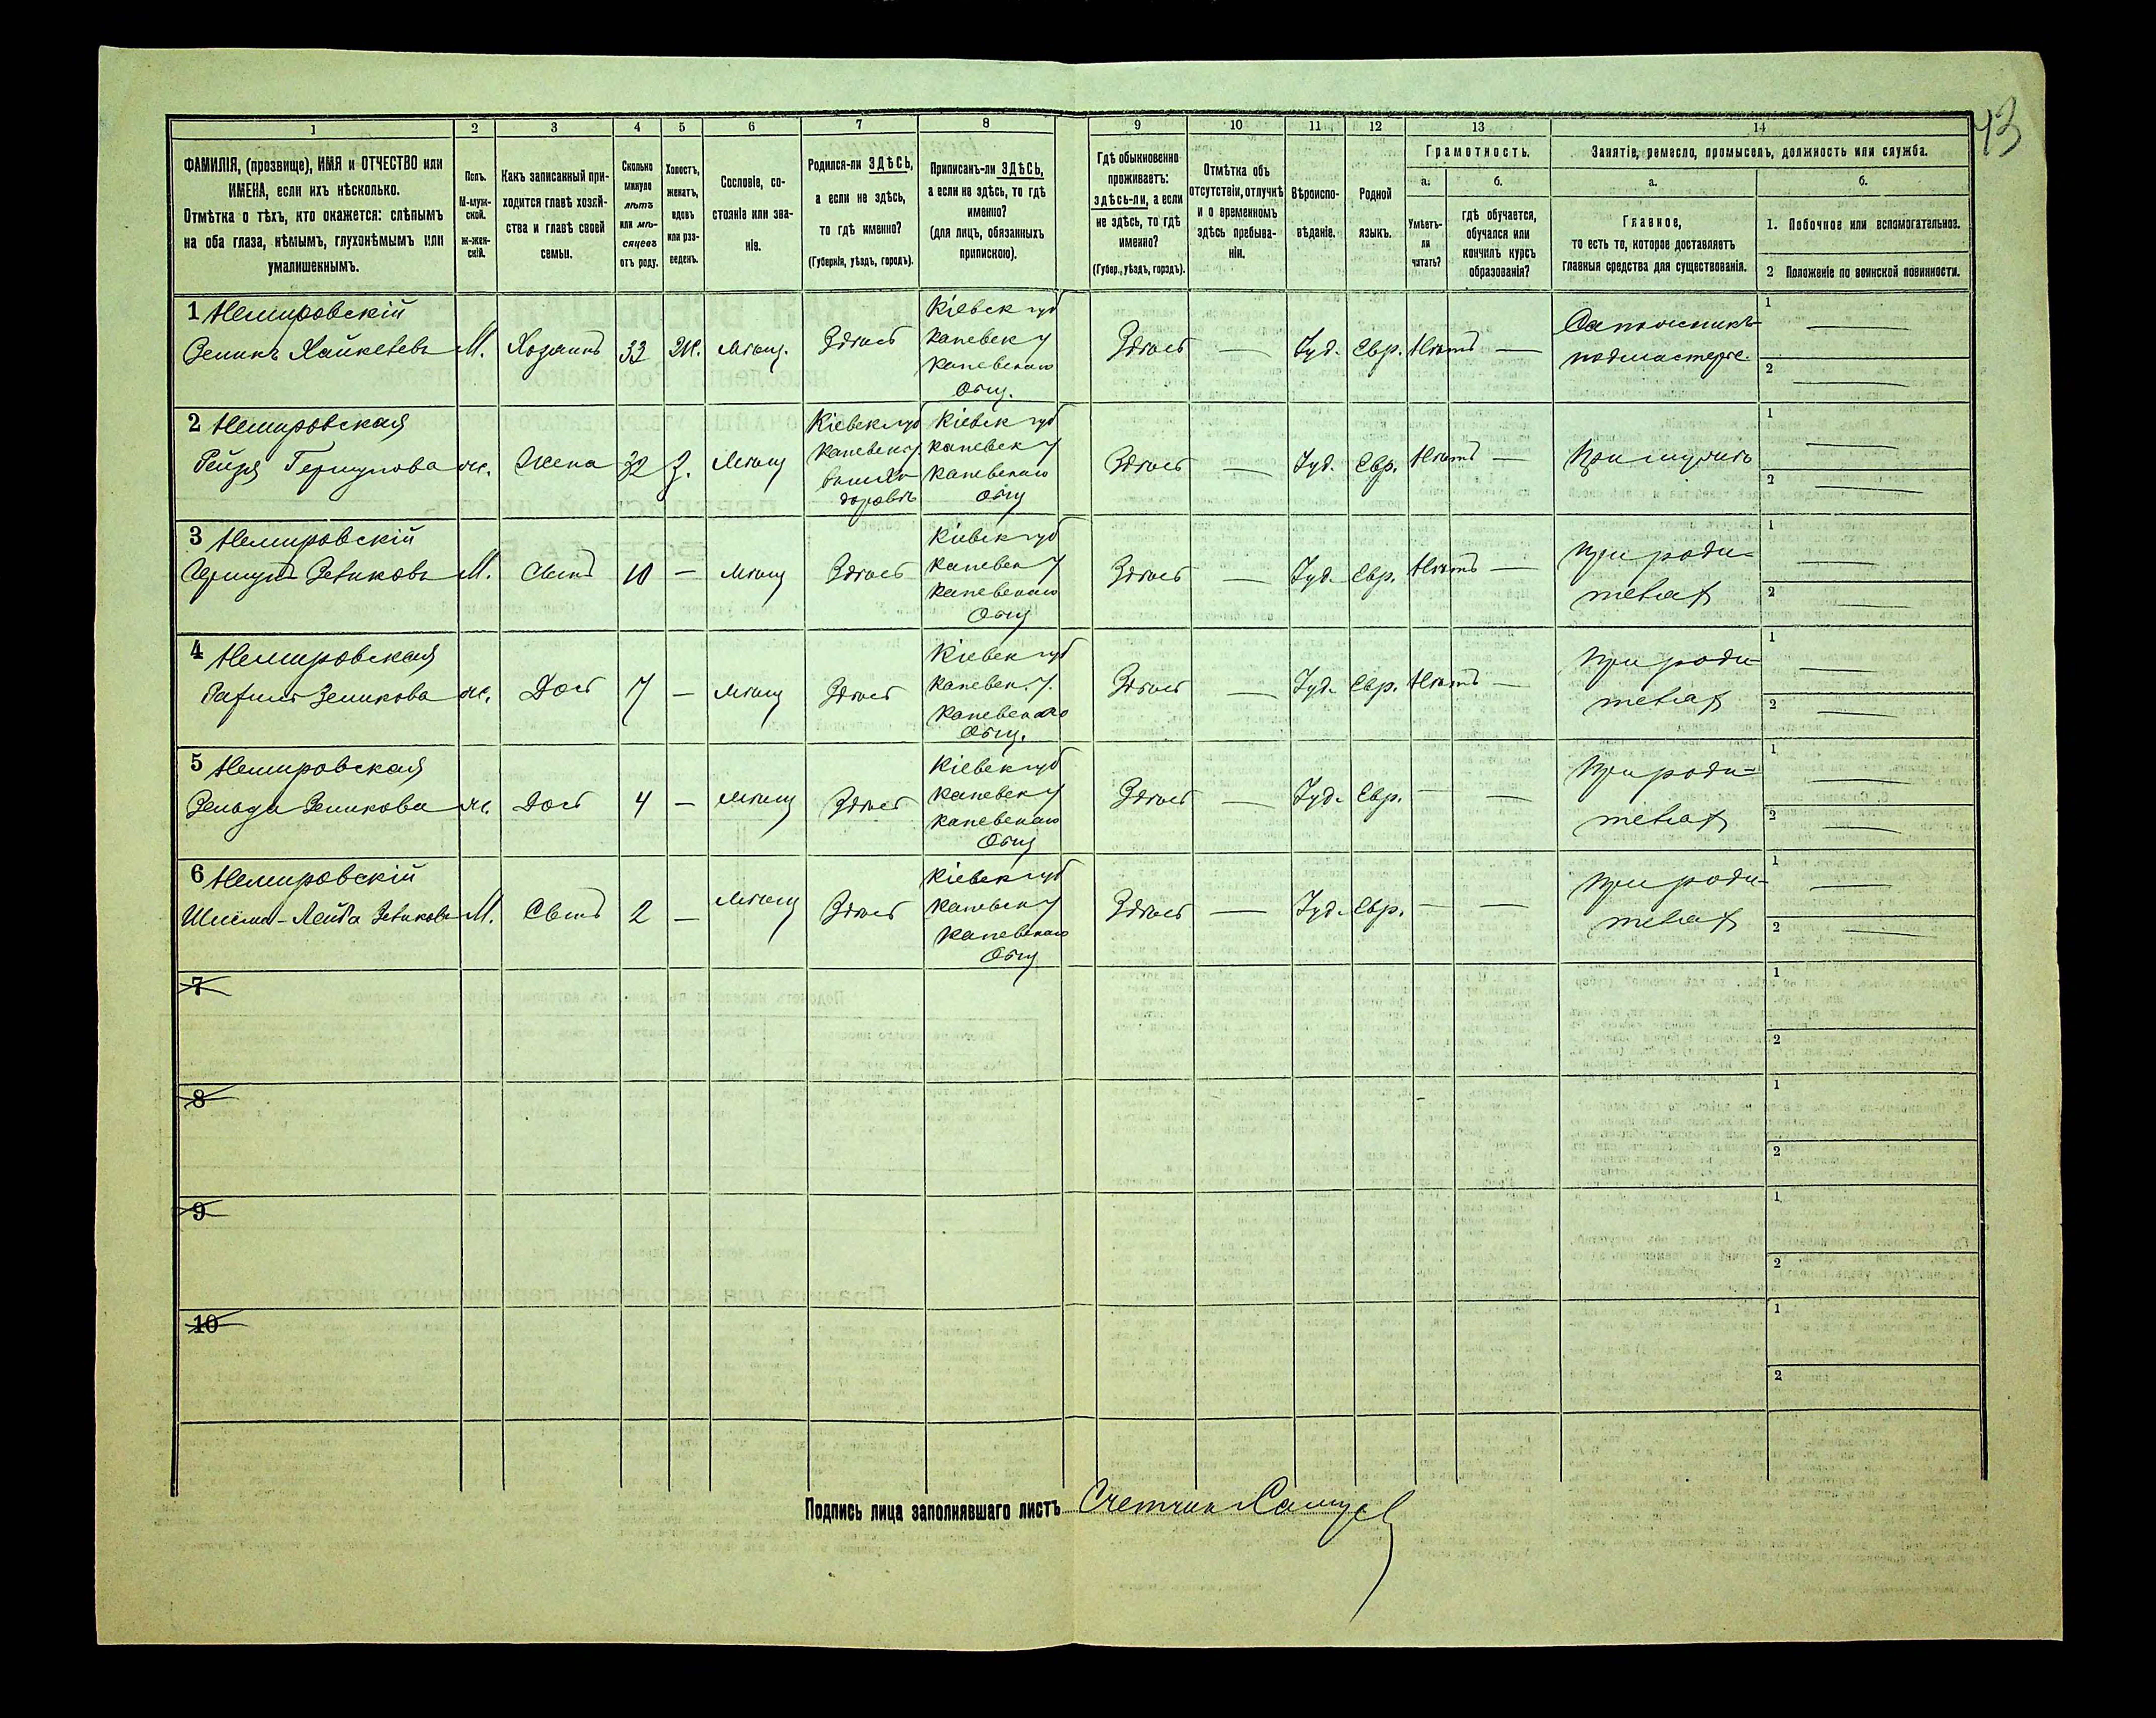 43
1
2
3
4
5
6
7
8
9
10
11
12
13
14
ФАМИЛІЯ, (прозвище), ИМЯ и ОТЧЕСТВО или
ИМЕНА, если ихъ нѣсколько.
Отмѣтка о тѣхъ, кто окажется: слѣпымъ
на оба глаза, нѣмымъ, глухонѣмымъ или
умалишеннымъ.
Полъ.
М-муж-
ской.
Ж-жен-
скій.
Какъ записанный при-
ходится главѣ хозяй-
ства и главѣ своей
семьи.
Сколько
минуло
лѣтъ
или мѣ-
сяцевъ
отъ роду.
Холостъ,
женатъ,
вдовъ
или раз-
веденъ.
Сословіе, со-
стояніе или зва-
ніе.
Родился-ли ЗДѢСЬ,
а если не здѣсь,
то гдѣ именно?
(Губернія, уѣздъ, городъ).
Приписанъ-ли ЗДѢСЬ,
а если не здѣсь, то гдѣ
именно?
(для лицъ, обязанныхъ
припискою).
Гдѣ обыкновенно
проживаетъ:
здѣсь-ли, а если
не здѣсь, то гдѣ
именно?
(Губер., уѣздъ, городъ).
Отмѣтка объ
отсутствіи, отлучкѣ
и о временномъ
здѣсь пребыва-
ніи.
Вѣроиспо-
вѣданіе.
Родной
языкъ.
Грамотность.
а.
Умѣетъ-
ли
читать?
б.
гдѣ обучается,
обучался или
кончилъ курсъ
образованія?
Занятіе, ремесло, промыселъ, должность или служба.
а.
Главное,
то есть то, которое доставляетъ
главныя средства для существованія.
б.
1. Побочное или вспомогательное.
2 Положеніе по воинской повинности.
1 Немировскій
Зеликъ
М.
Хозяинъ
33
Ж.
Мѣщ.
Здѣсь
Кіевск губ
Каневск у
Каневскаго
Общ.
Здѣсь
—
Іуд.
Евр.
Нѣтъ
—
Сапожникъ-
подмастерье.
1 —
2 —
2 Немировская
Рейзя Гершкова
ж.
Жена
32
З.
Мѣщ
Кіевск губ
Каневск у
Кіевск губ
Каневск у
Каневскаго
Общ
Здѣсь
—
Іуд.
Евр.
Нѣтъ
—
При мужѣ
1 —
2 —
3 Немировскій
Зеликовъ
М.
Сынъ
10
—
Мѣщ
Здѣсь
Кіевск губ
Каневск у
Каневскаго
Общ
Здѣсь
—
Іуд.
Евр.
Нѣтъ
—
при роди-
телях
1 —
2 —
4 Немировская
Рахиль Зеликова
ж.
Дочь
7
—
Мѣщ
Здѣсь
Кіевск губ
Каневск. у.
Каневскаго
Общ.
Здѣсь
—
Іуд.
Евр.
Нѣтъ
—
при роди-
телях
1 —
2 —
5 Немировская
Зельда Зеликова
ж.
Дочь
4
—
Мѣщ
Здѣсь
Кіевск губ
Каневск у
Каневскаго
Общ
Здѣсь
—
Іуд.
Евр.
—
—
при роди-
телях
1 —
2 —
6 Немировскій
Шлема-Лейба Зеликовъ
М.
Сынъ
2
—
Мѣщ
Здѣсь
Кіевск губ
Каневск у
Каневскаго
Общ
Здѣсь
—
Іуд.
Евр.
—
—
при роди-
телях
1 —
2 —
7
1
2
8
1
2
9
1
2
10
1
2
Подпись лица заполнявшаго листъ Счетчик